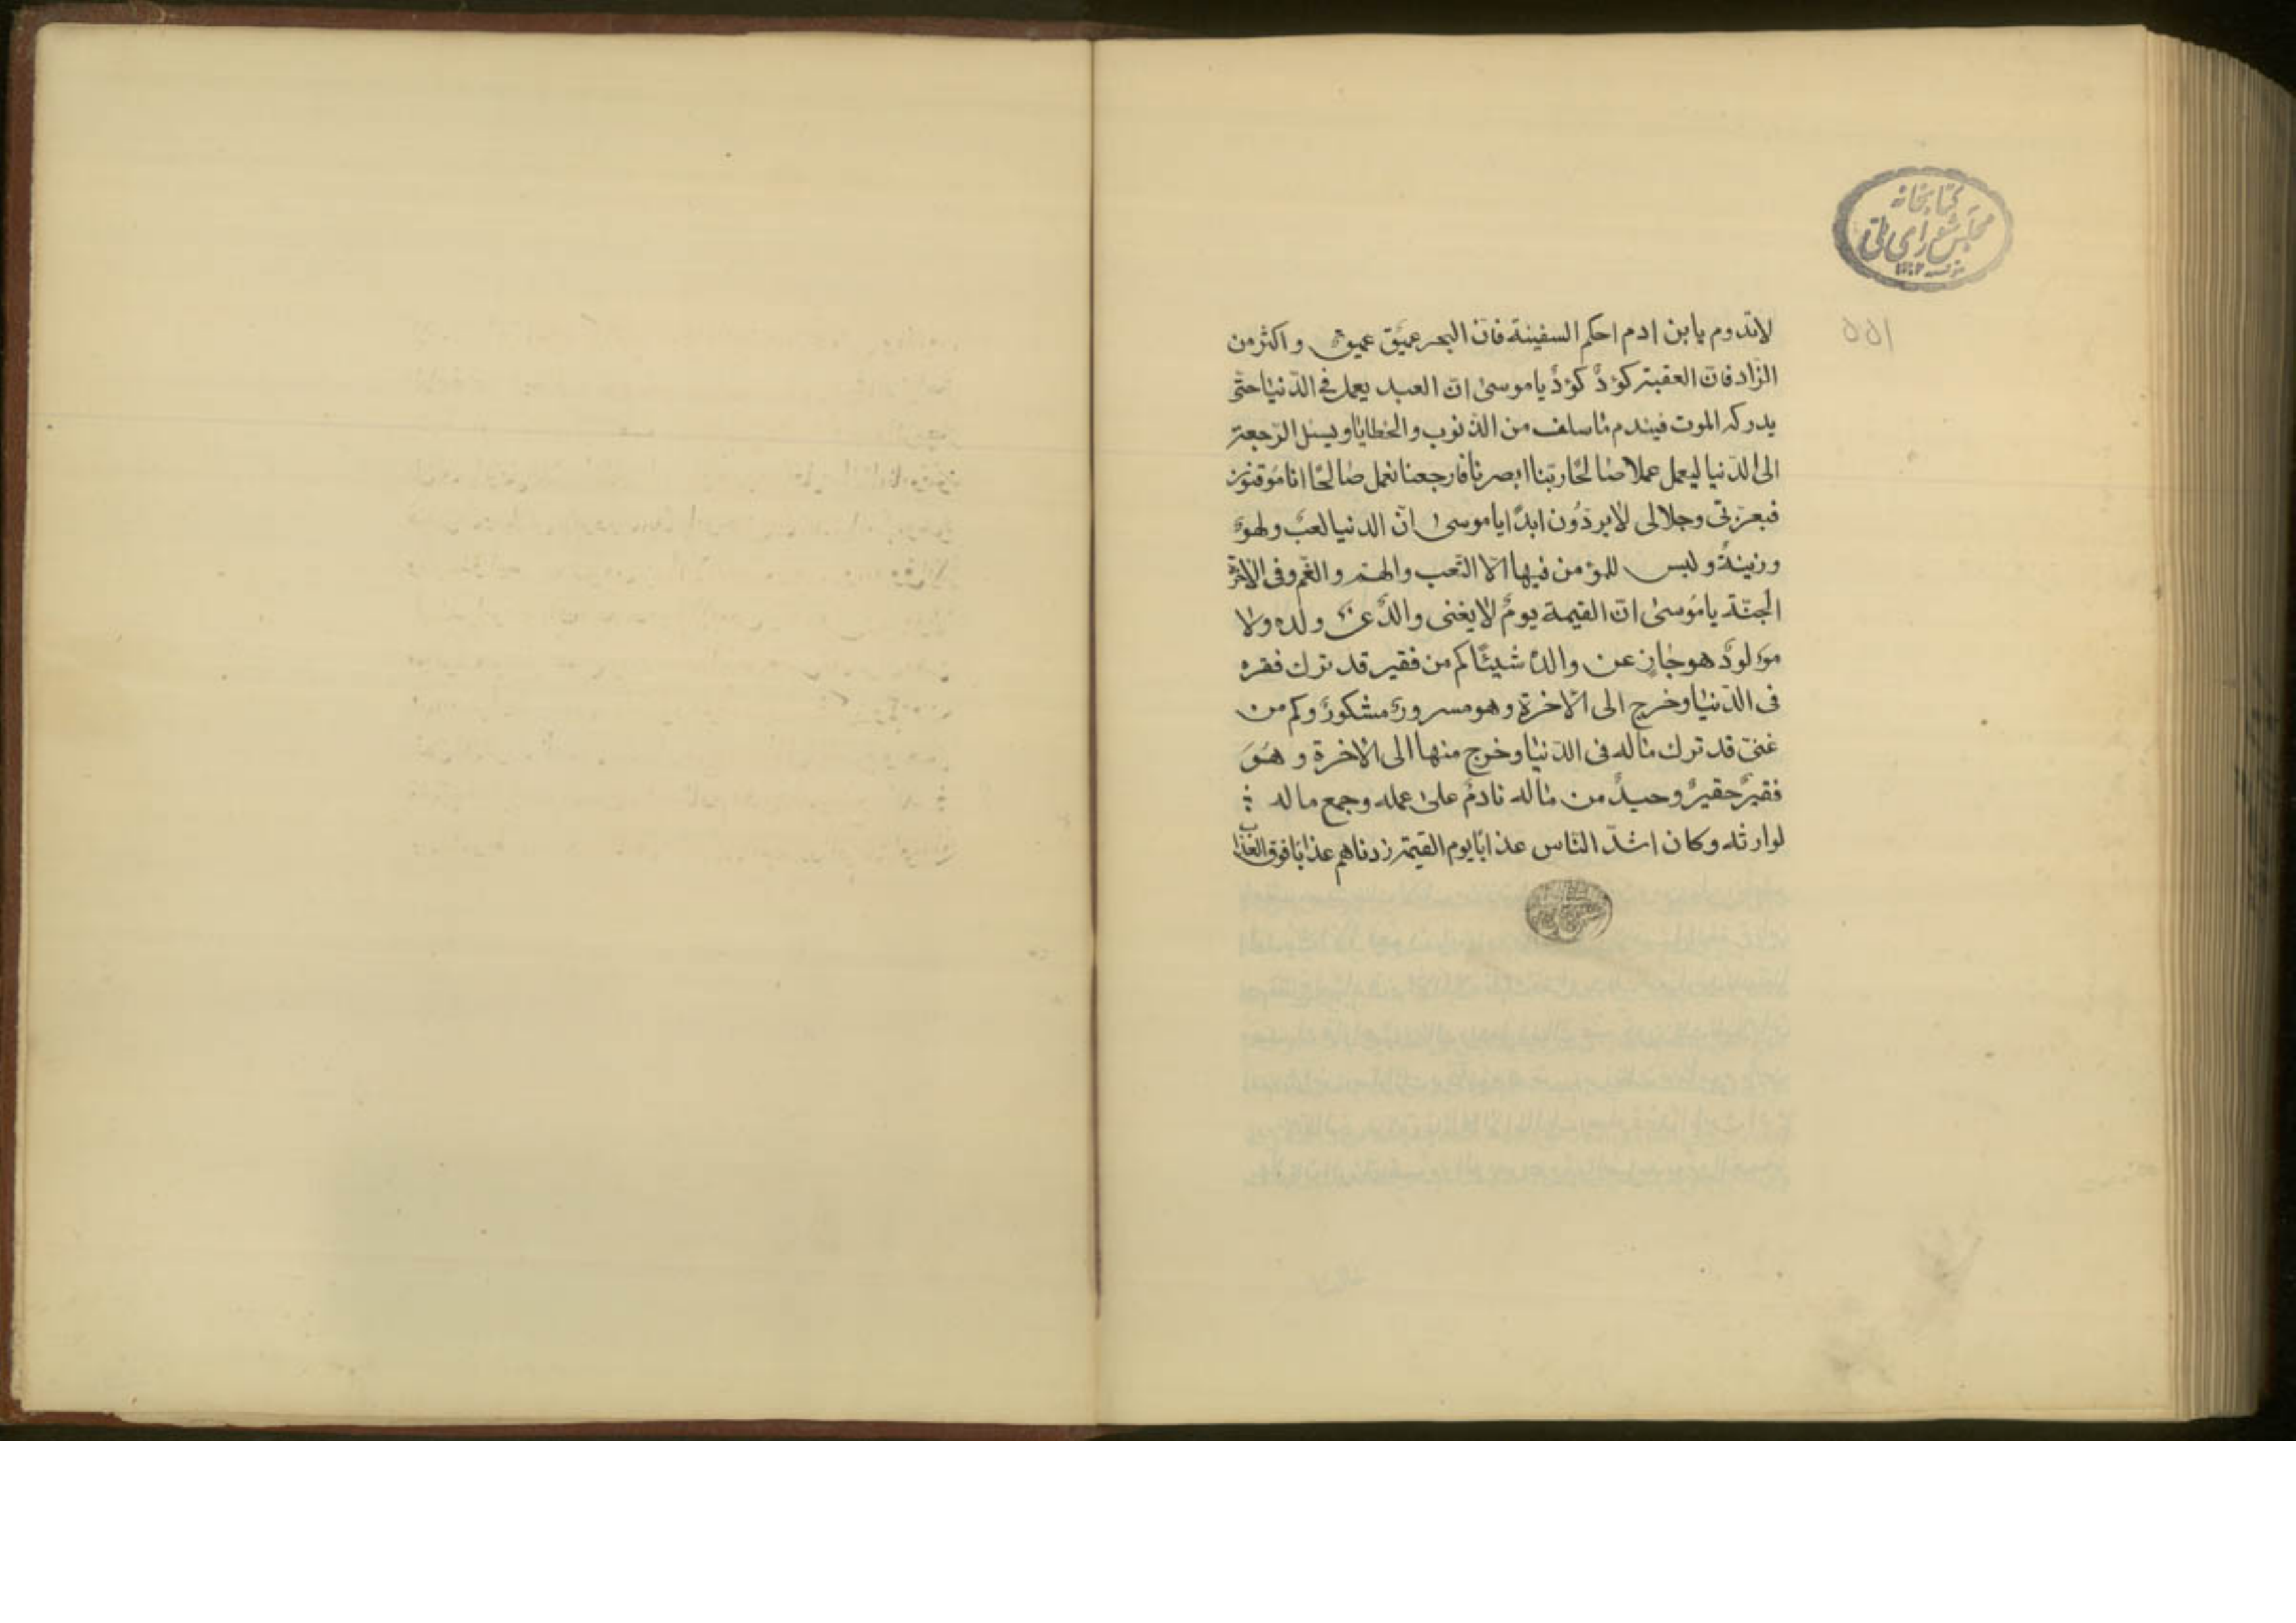 کتابخانه
مجلس شورای ملی
لاتدوم یابن ادم احکم السفینة فان البحر عمیق عمیق و اکثر من
الزاد فان العقبة کؤد کؤد یا موسی ان العبد یعمل فی الدنیا حتی
یدرکه الموت فیندم ما سلف من الذنوب والخطایا و یسئل الرجعة
الی الدنیا لیعمل عملا صالحا ربنا ابصرنا فارجعنا نعمل صالحا انا موقنون
فبعزتی وجلالی لا یردون ابدا یا موسی ان الدنیا لعب ولهو
وزینة ولیس للمؤمن فیها الا التعب والهم والغم وفی الاخرة
الجنة یا موسی ان القیمة یوم لا یغنی والد عن ولده ولا
مولود هو جاز عن والده شیئا کم من فقیر قد ترک فقره
فی الدنیا وخرج الی الاخرة وهو مسرور مشکور وکم من
غنی قد ترک ماله فی الدنیا وخرج منها الی الاخرة و هو
فقیر حقیر وحید من ماله نادم علی عمله وجمع ماله
لوارثه وکان اشد الناس عذابا یوم القیمة زدناهم عذابا فوق العذاب